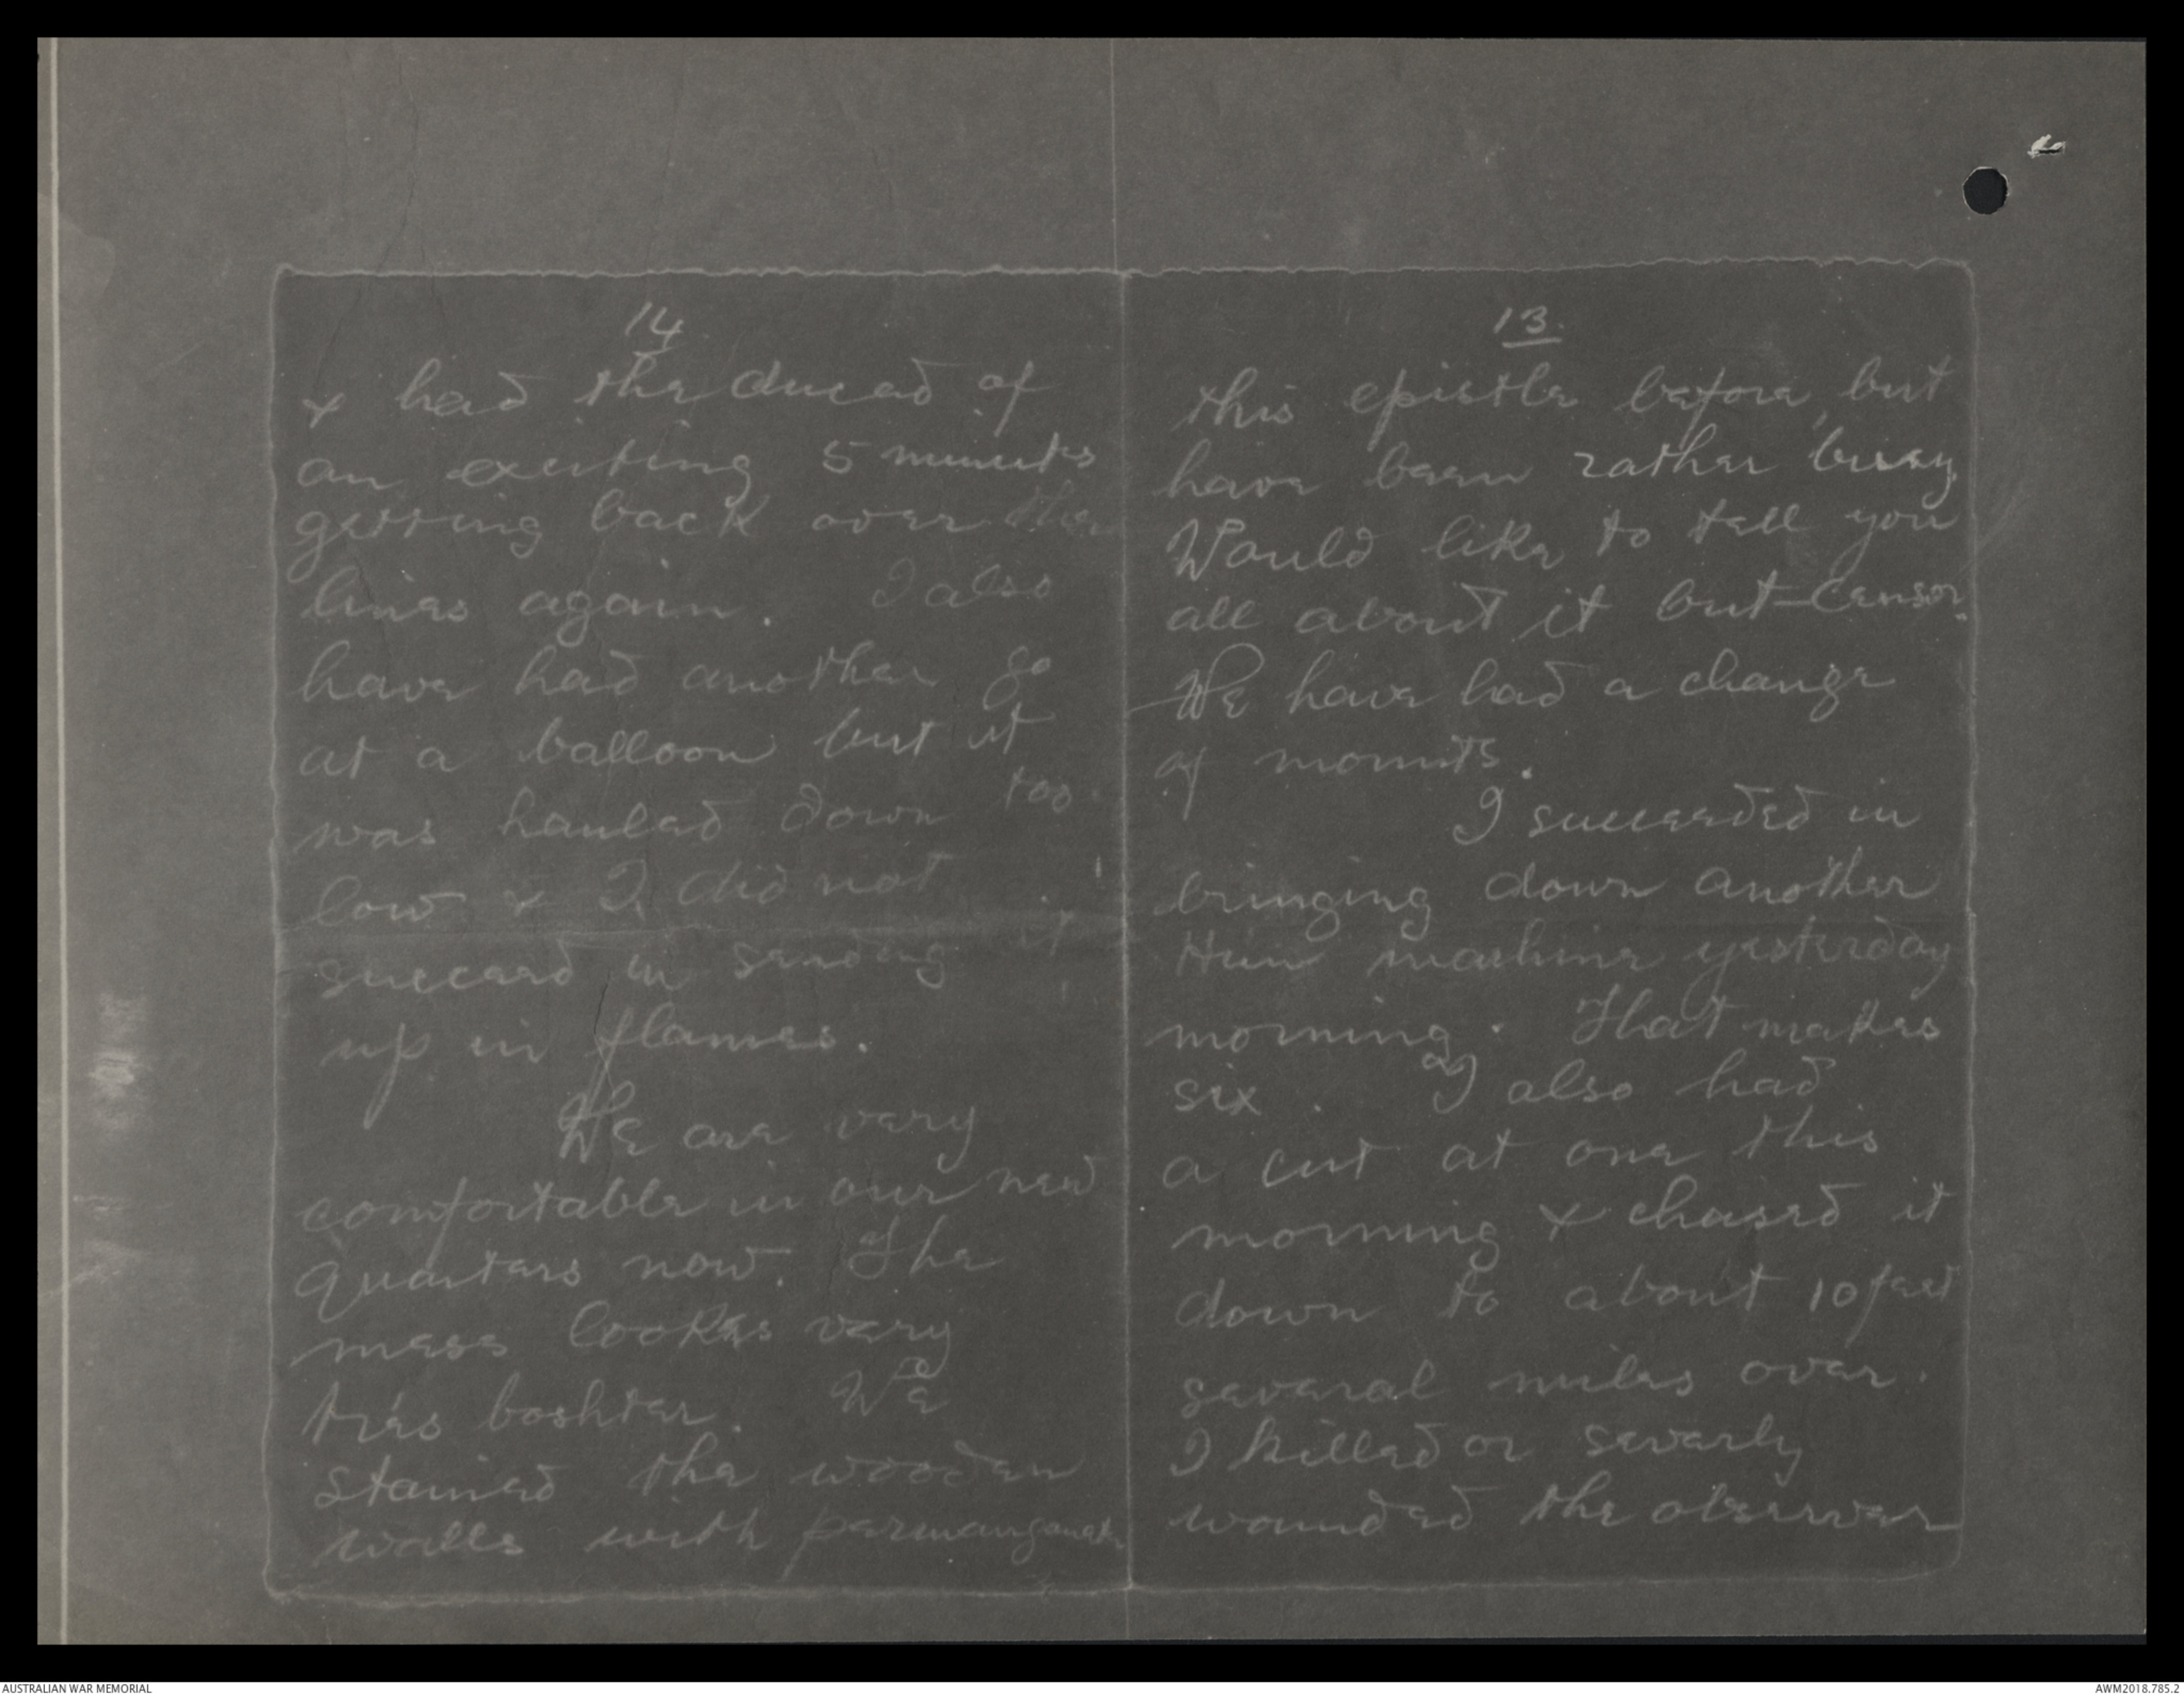 14
& had the duead of
an exciting 5 minutes
getting back over the
lines again. I also
have had another go
at a balloon but it
was hauled down too
low & I did not
succeed in sending it
up in flames.
We are very
comfortable in our new
quarters now. The
mess looks very
très boshter. We
stained the wooden
walls with permanganate
13.
this epistle before, but
have been rather busy
Would like to tell you
all about it but – Censor.
We have had a change
of mounts.
I succeeded in
bringing down another
Hun machine yesterday
morning. That makes
six. I also had
a cut at one this
morning & chased it
down to about 10 feet
several miles over.
I killed or severly
wounded the observer
AUSTRALIAN WAR MEMORIAL
AWM2018.785.2